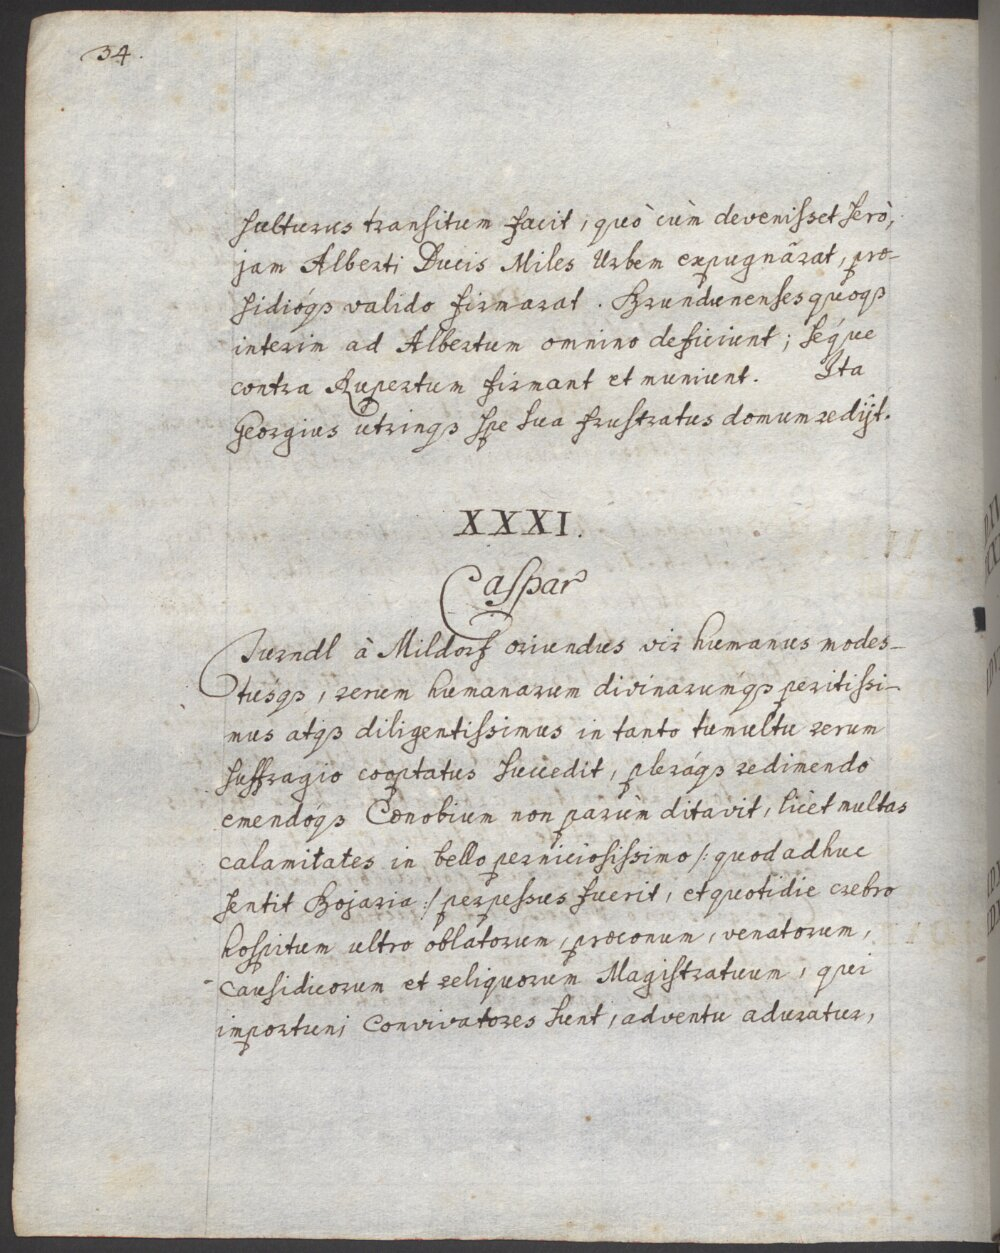 34.
sulturus transitum facit, quò cùm devenisset serò,
jam Alberti Ducis Miles Urbem expugnãrat, præ-
sidióqꝫ valido firmarat. Brundunenses quoqꝫ
interim ad Albertum omnino deficiunt; séque
contra Rupertum firmant et muniunt. Ita
Georgius utrinqꝫ spe sua frustratus domum redijt.
XXXI.
Caspar
Türndl à Mildorf oriundus vir humanus modes-
tusqꝫ, rerum humanarum divinarumqꝫ peritissi-
mus atqꝫ diligentissimus in tanto tumultu rerum
suffragio cooptatus succedit, pleráqꝫ redimendo
emendóqꝫ Cœnobium non parùm ditavit, licèt multas
calamitates in bello perniciosissimo /: quod adhuc
sentit Bojaria :/ perpessus fuerit, et quotidie crebro
hospitum ultro oblatorum, præconum, venatorum,
causidicorum et reliquorum Magistratuum, qui
importuni Convivatores sunt, adventu aduratur,